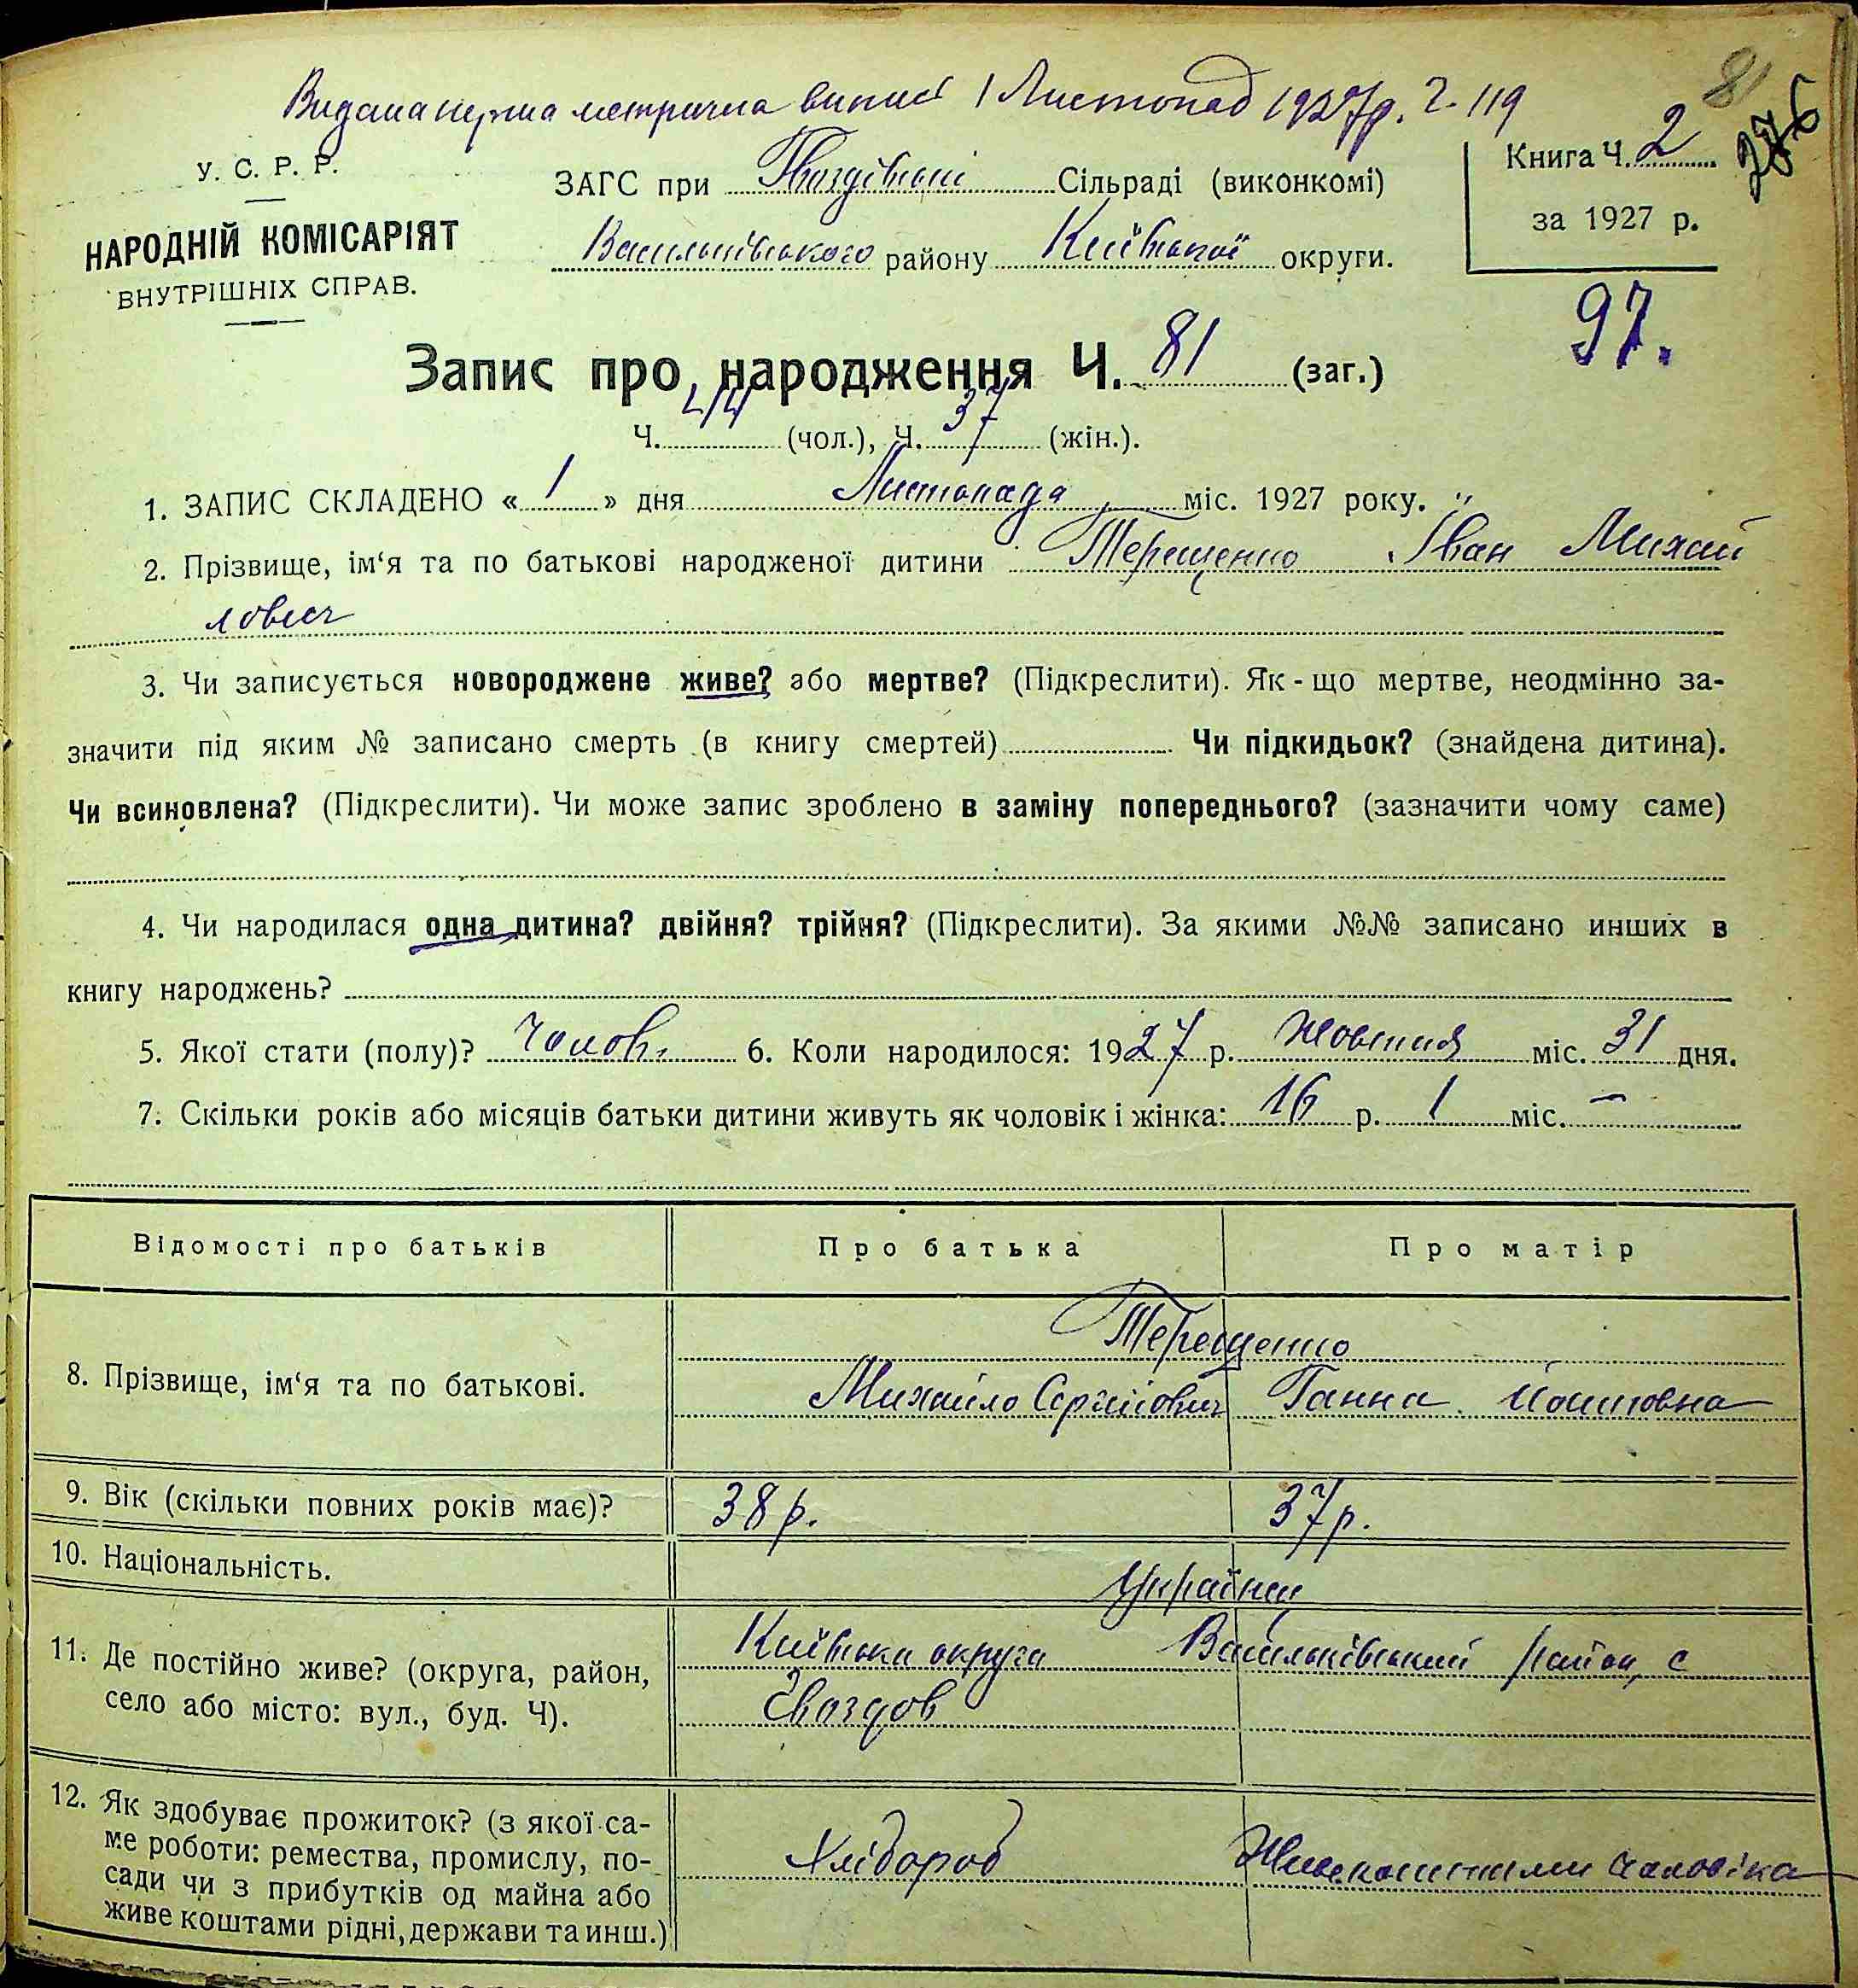 81
Видана перша метрична випись 1 Листопад 1927р. Ч. 119
276
У. С. Р. Р.
НАРОДНІЙ КОМІСАРІЯТ
ВНУТРІШНІХ СПРАВ.
ЗАГС при Гвоздівські Сільраді (виконкомі)
Васильківського району Київської округи.
Книга Ч. 2
за 1927 р.
97.
Запис про народження Ч. 81 (заг.)
Ч. 44 (чол.), Ч. 37 (жін.).
1. ЗАПИС СКЛАДЕНО « 1 » дня Листопада міс. 1927 року.
2. Прізвище, ім‘я та по батькові народженої дитини Терещенко Іван Михай
лович
3. Чи записується новороджене живе? або мертве? (Підкреслити). Як-що мертве, неодмінно за-
значити під яким № записано смерть (в книгу смертей) Чи підкидьок? (знайдена дитина).
Чи всиновлена? (Підкреслити). Чи може запис зроблено в заміну попереднього? (зазначити чому саме)
4. Чи народилася одна дитина? двійня? трійня? (Підкреслити). За якими №№ записано инших в
книгу народжень?
5. Якої стати (полу)? Чолов. 6. Коли народилося: 1927 р. Жовтня міс. 31 дня.
7. Скільки років або місяців батьки дитини живуть як чоловік і жінка: 16 р. 1 міс. –
Відомості про батьків Про батька Про матір
Терещенко
8. Прізвище, ім‘я та по батькові. Михайло Сергійович Ганна
9. Вік (скільки повних років має)? 38 р. 37 р.
10. Національність. Українці
11. Де постійно живе? (округа, район,
село або місто: вул., буд. Ч).
Київська округа Васильківський район, с
Гвоздов
12. Як здобуває прожиток? (з якої са-
ме роботи: ремества, промислу, по-
сади чи з прибутків од майна або
живе коштами рідні, держави та инш.)
Хлібороб Живе коштами чоловіка